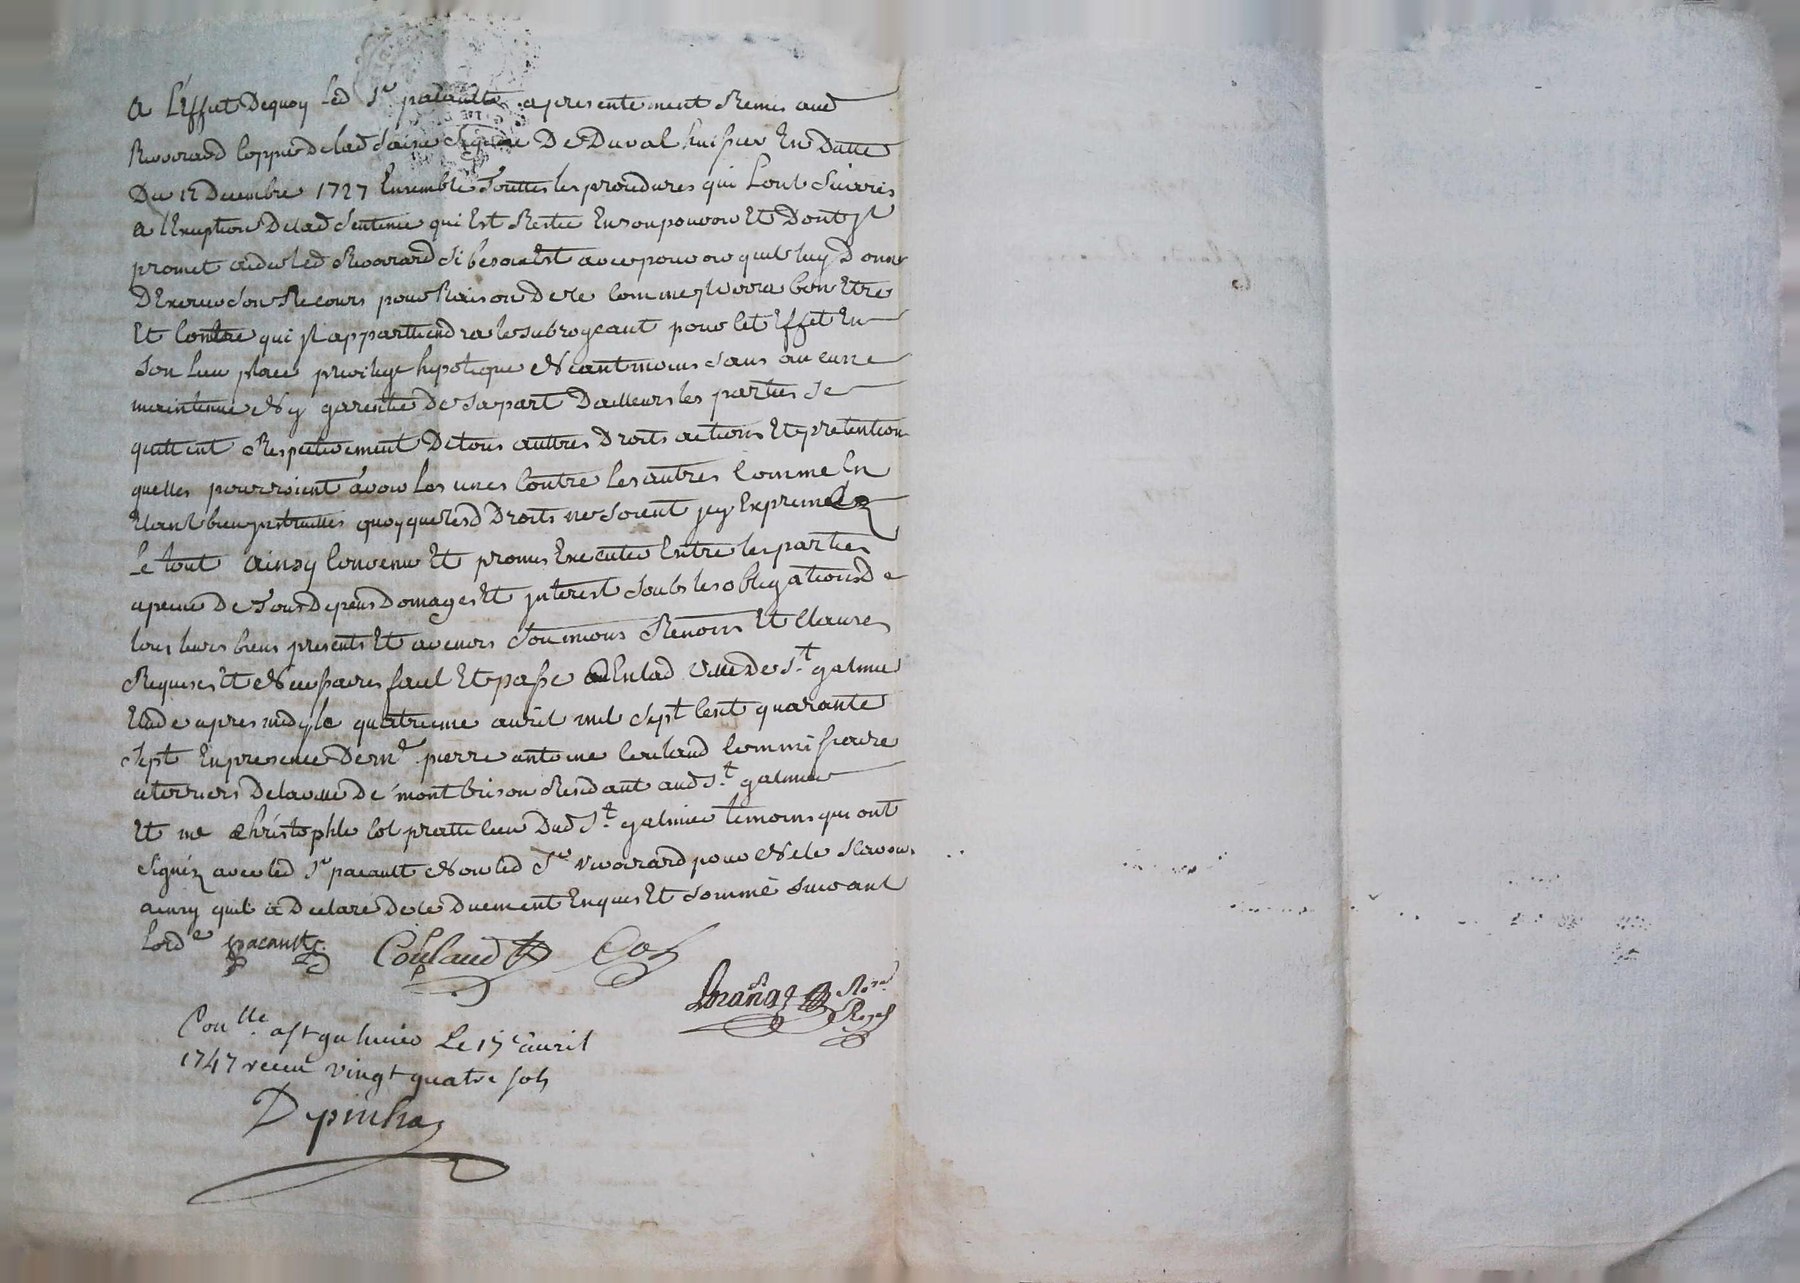 a L'Effet Dequoy led Sr pacault apresentement Remis aud
Rivoirard coppie de lad saisie signée De Duval huissier En Datte
Du 12 Decembre 1727 Ensemble touttes les procedures qui Sont suivies
a l'Exeqution De lad sentence qui Est Restée En son pouvoir Et Dont jl
promet aider led Rivoirard si besoin Est avec pouvoir quil luy Donne
D'Exercer son Recours pour Raison de ce comme jl verra bon Etre
Et contre qui jl appartiendra le subrogeant pour cet Effet En
son lieu place privilege hipoteque Neantmoins sans aucune
maintenue Ny garentie de sa part D'ailleurs les parties se
quittent Respectivement De tous auttres Droits actions Et pretention
quelles pourroient avoir les unes contre les autres comme En
Etant bien jnstruittes quoyque lesd Droits ne soient jcy Exprimés
Le tout ainsy convenu Et promis Executer Entre les parties
a peine de tous Depens Domages Et jnterest soubs les obligations De
tous leurs biens presents Et avenirs soumions Renons Et clauses
Requises Et Necessaires fait Et passé En lad ville de St galmier
Etude apres midy le quatrieme avril mil sept cent quarante
sept En presence De me pierre antoine coulaud commissaire
a terriers de la ville de montbrison Residant aud St galmier
Et me Christophle Col pratticien Dud St galmier temoins qui ont
signéz avec led Sr pacault Non led Sr Rivoirard pour Ne le scavoir
ainsy quil a Declaré De ce Duement Enquis Et sommé suivant
Lordce pacault Coulaud Col
No.re Royal
Conlle a St galmier Le 15e avril
1747 receu vingt quatre sols
Depinhac